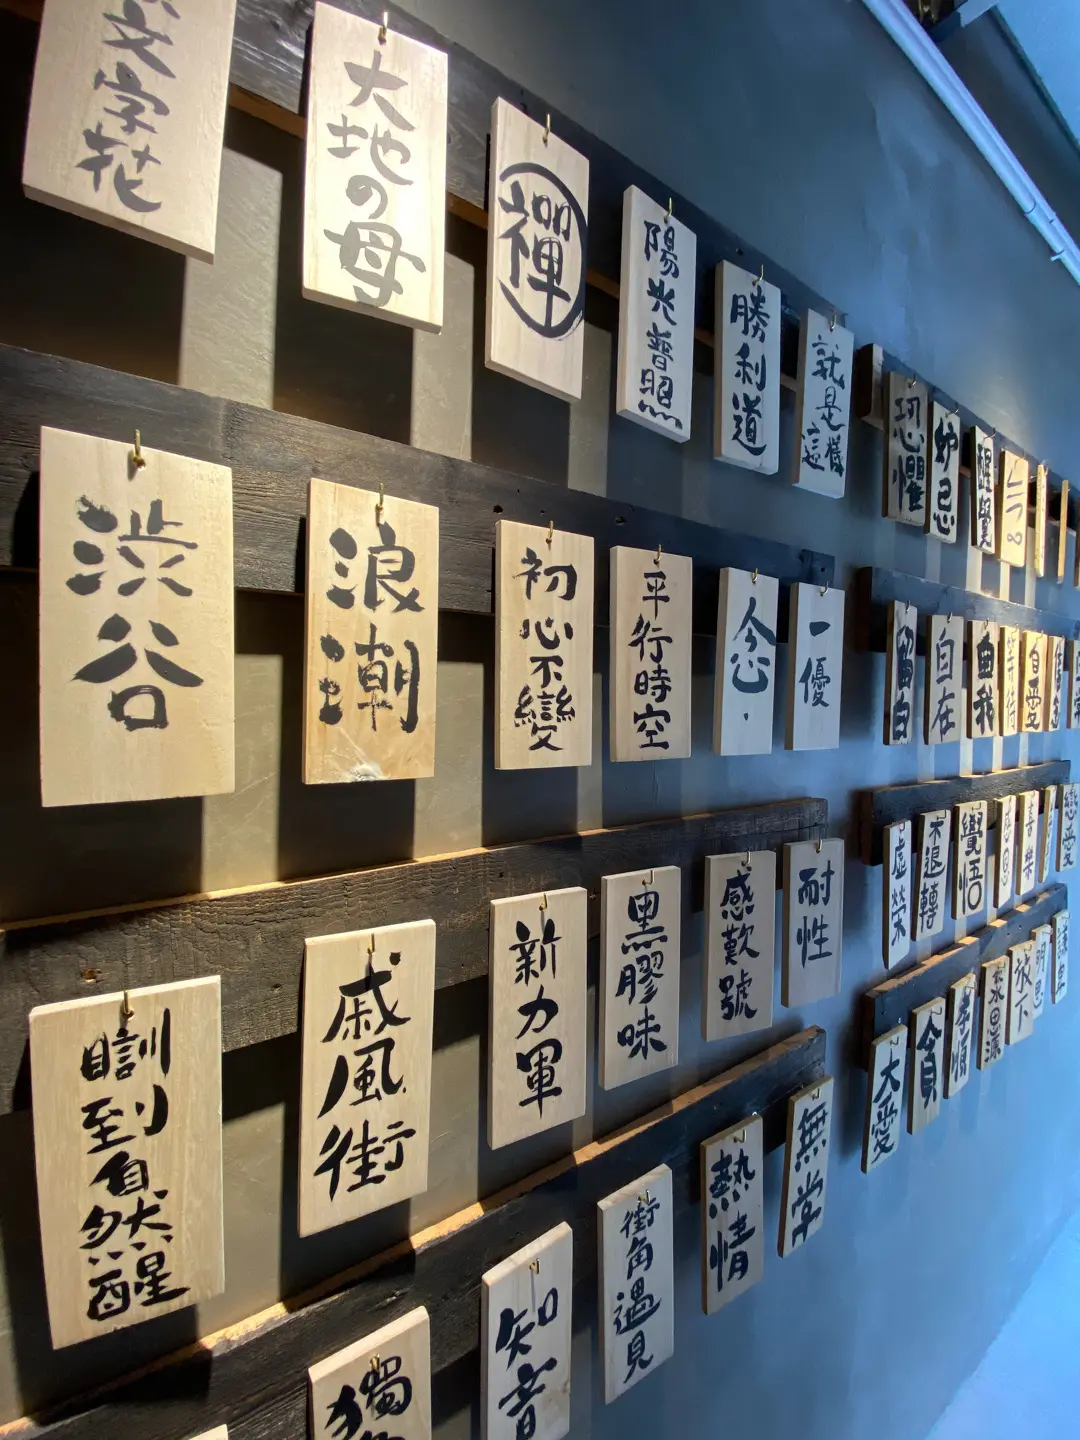 文字花
大地の母
禪
陽光普照
勝利道
就是這樣
恐懼
妒忌
醒覺
渋谷
浪潮
初心不變
平行時空
念
一優
留白
自在
自我
等待
自愛
虛榮
不退轉
覺悟
感恩
喜樂
戀愛
瞓到自然醒
戚風街
新力軍
黑膠味
感歎號
耐性
大愛
貪
孝順
飲水思源
放下
獨
知音
街角遇見
熱情
無常